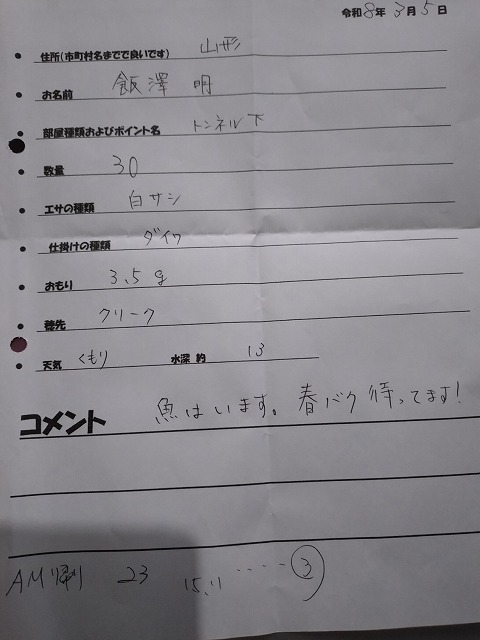 令和8年 3月 5日
住所(市町村名までで良いです) 山形
お名前 飯澤 明
部屋種類およびポイント名 トンネル下
数量 30
エサの種類 白サシ
仕掛けの種類 ダイワ
おもり 3.5g
穂先 クリーク
天気 くもり 水深 約 13
コメント 魚はいます。春バク待ってます!
AM 23 15.11 ····③